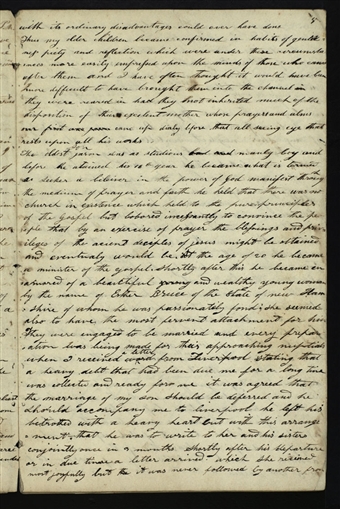 5
with its ordinary disadvantages could ever have done
Thus my older children became confirmed in habits of gentle
piety and reflection which were under these circumstan
ces more easily impressed upon the minds of those who came
after them and I have often thought it would have been
more difficult to have brought them into the channel in
they were reared in had they not inherited much of the
disposition of their excelent mother whose prayers and alms
our first came up daily before that all seing eye that
rests upon all his works
The oldest Jason was a studious and manly boy and
before he atained his 16th year he became what is termed
a seeker a believer in the power of god manifest through
the medium of prayer and faith he held that there was no
church in existence which held to the pure principles
of the Gospel but labored incessantly to convince the pe
ople that by an exercise of prayer the blessings and priv
ileges of the acient deciples of jesus might be obtained
and eventualy would be, at the age of 20 he became
a minister of the gospel. Shortly after this he became en
amored of a beautifful young and wealthy young woman
by the name of Esther Bruce of the State of new Ham
shire of whom she was passionately fond; she seemed
also to have the most fervent attachment for him
They were engaged to be married and every prepar
ation was being made for their approaching nuptials
when I received a letter from Liverpool stating that
a heavy debt that had been due me for a long time
was collected and ready for me it was agreed that
the marriage of my son should be deferred and he
should accompany me to Liverpool he left his
betrothed with a heavy heart but with this arrange
ment, that he was to write to her and his sister
conjointly once in 3 months, Shortly after his departure
or in due time a letter arrived which she recieved
most joyfully but it was never followed by another from